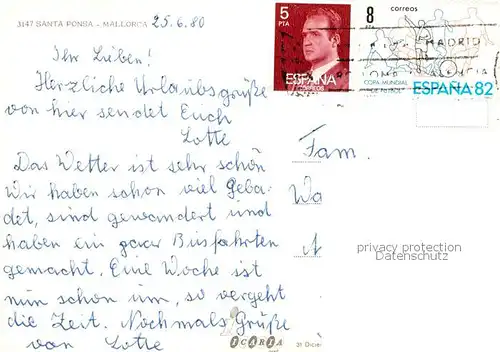 3147 SANTA PONSA - MALLORCA 25.6.80
Ihr Lieben!
Herzliche Urlaubsgrüße
von hier sendet Euch
Lotte
Das Wetter ist sehr schön
Wir haben schon viel Geba-
det, sind gewandert und
haben ein paar Busfahrten
gemacht. Eine Woche ist
nun schon um, so vergeht
die Zeit. Nochmals Grüße
von Lotte
5 PTA
ESPAÑA
CORREOS
8 PTA
correos
MADRID
VALENCIA
COPA MUNDIAL
DE FUTBOL
ESPAÑA 82
Fam.
Wa
privacy protection
Datenschutz
ICARIA